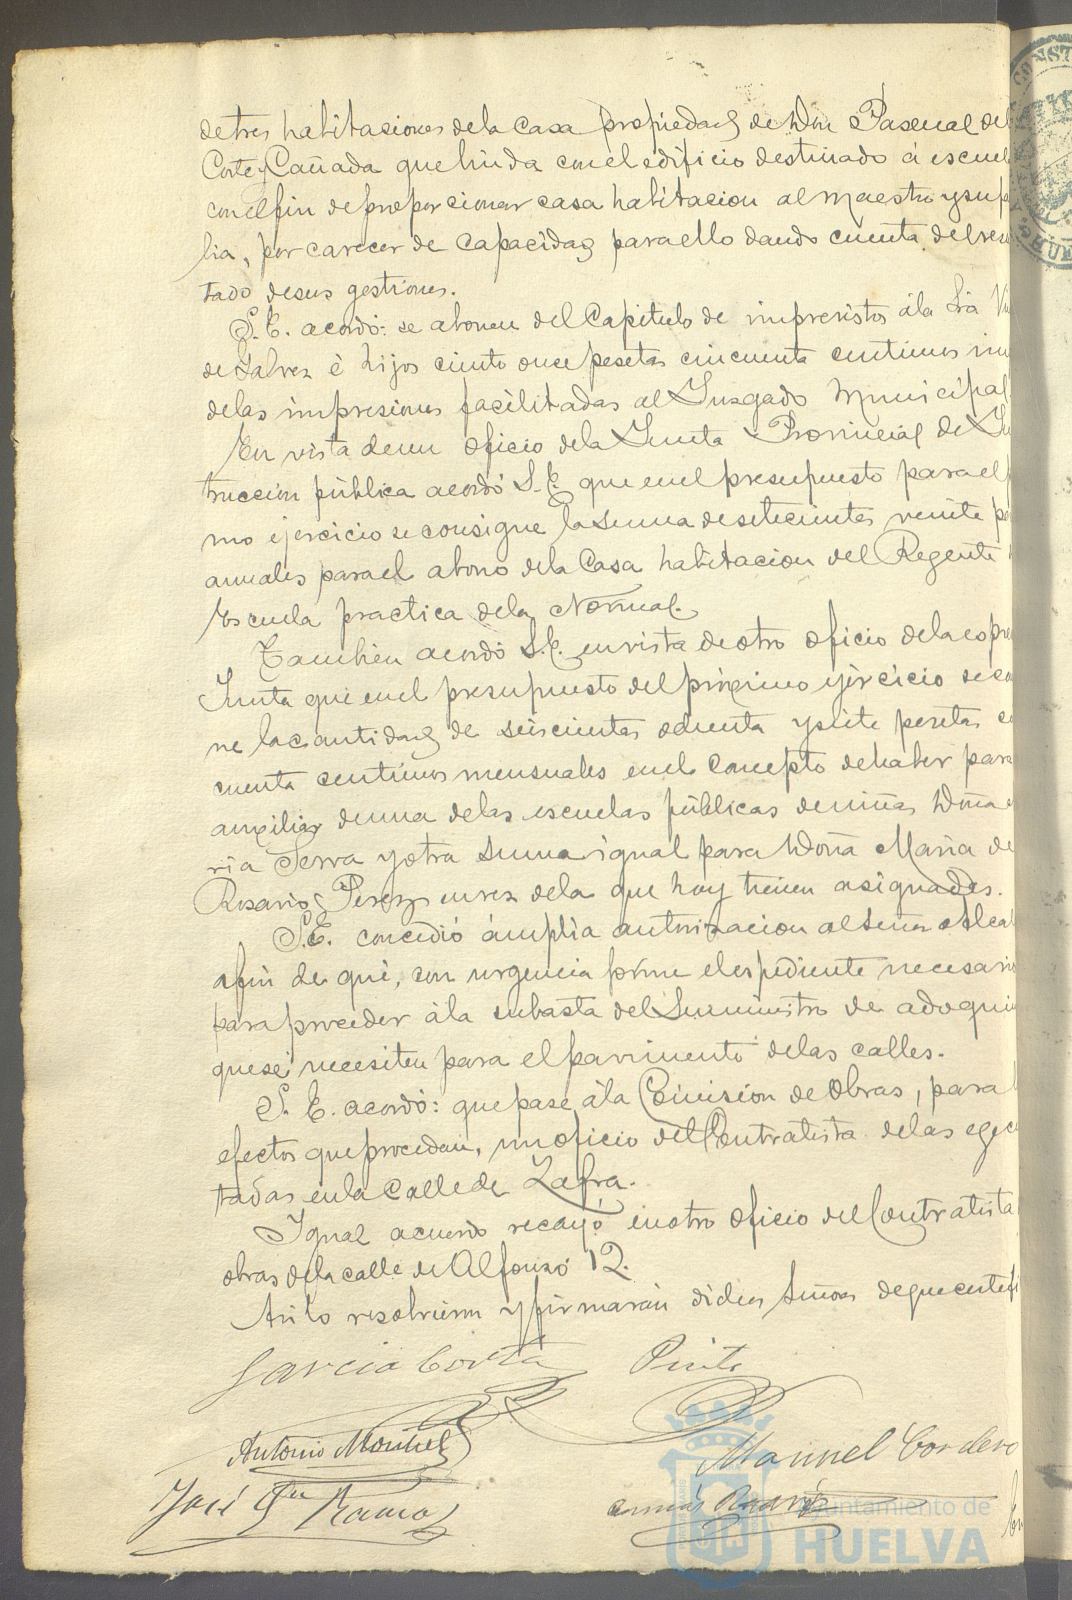 de tres habitaciones de la casa propiedad de Don Pascual del
Corte y Cañada que linda con el edificio destinado á escuel
con el fin de proporcionar casa habitacion al maestro y su
lia, por carecer de capacidad para ello dando cuenta del
tado de sus gestiones.
S. E. acordó: se abonen del Capitulo de imprevistos á la Srâ
de Galvez é hijos ciento once pesetas cincuenta centimos
de las impresiones facilitadas al Juzgado Municipal
En vista de un oficio de la Junta Provincial de
truccion pública acordó S. E. que en el presupuesto para el
mo ejercicio se consigne la suma de setecientas veinte
anuales para el abono de la Casa habitacion del Regente
Escuela practica de la Normal.
Tambien acordó S. E. en vista de otro oficio de la espre
Junta que en el presupuesto del próximo ejercicio se
ne la cantidad de seiscientas ochenta y siete pesetas
cuenta centimos mensuales en el concepto de haber para
auxiliar de una de las escuelas públicas de niñas Doña
ria Serra y otra suma igual para Doña Maria de
Rosario Perez en vez de la que hoy tienen asignadas.
S. E. concedió ámplia autorizacion al Señor Alcal
afin de que, con urgencia forme el espediente necesario
para proceder á la subasta del Suministro de adoqui
que se necesiten para el pavimento de las calles.
S. E. acordó: que pase á la Comision de Obras, para
efectos que procedan, un oficio del Contratista de las egec
tadas en la calle de Zafra.
Igual acuerdo recayó en otro oficio del Contratista
obras de la calle de Alfonso 12.
Asi lo resolvieron y firmarán dichos Señores de que certif
Garcia Cortes Pinto
Antonio Montiel Manuel Cordero
José Gu Ramos Ramirez
Ayuntamiento de
HUELVA